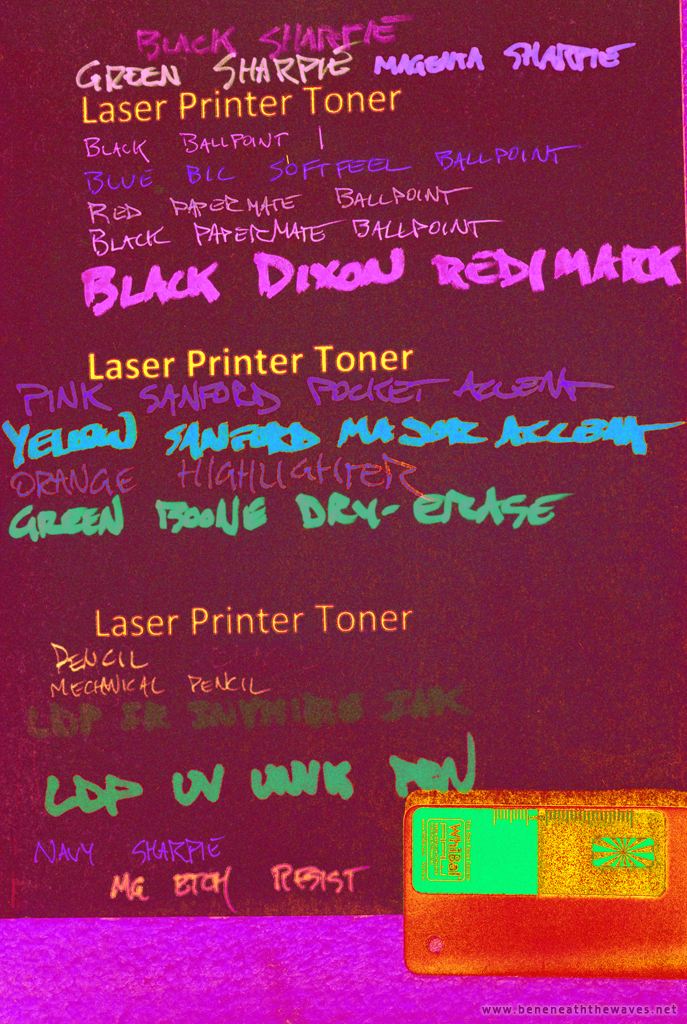 BLACK SHARPIE
GREEN SHARPIE MAGENTA SHARPIE
Laser Printer Toner
BLACK BALLPOINT |
BLUE BIC SOFTFEEL BALLPOINT
RED PAPERMATE BALLPOINT
BLACK PAPERMATE BALLPOINT
BLACK DIXON REDIMARK
Laser Printer Toner
PINK SANFORD POCKET ACCENT
YELLOW SANFORD MAJOR ACCENT
ORANGE HIGHLIGHTER
GREEN BOONE DRY-ERASE
Laser Printer Toner
PENCIL
MECHANICAL PENCIL
LDP IR INVISIBLE INK
LDP UV PEN
NAVY SHARPIE
MG ETCH RESIST
WhiBal
www.beneneaththewaves.net